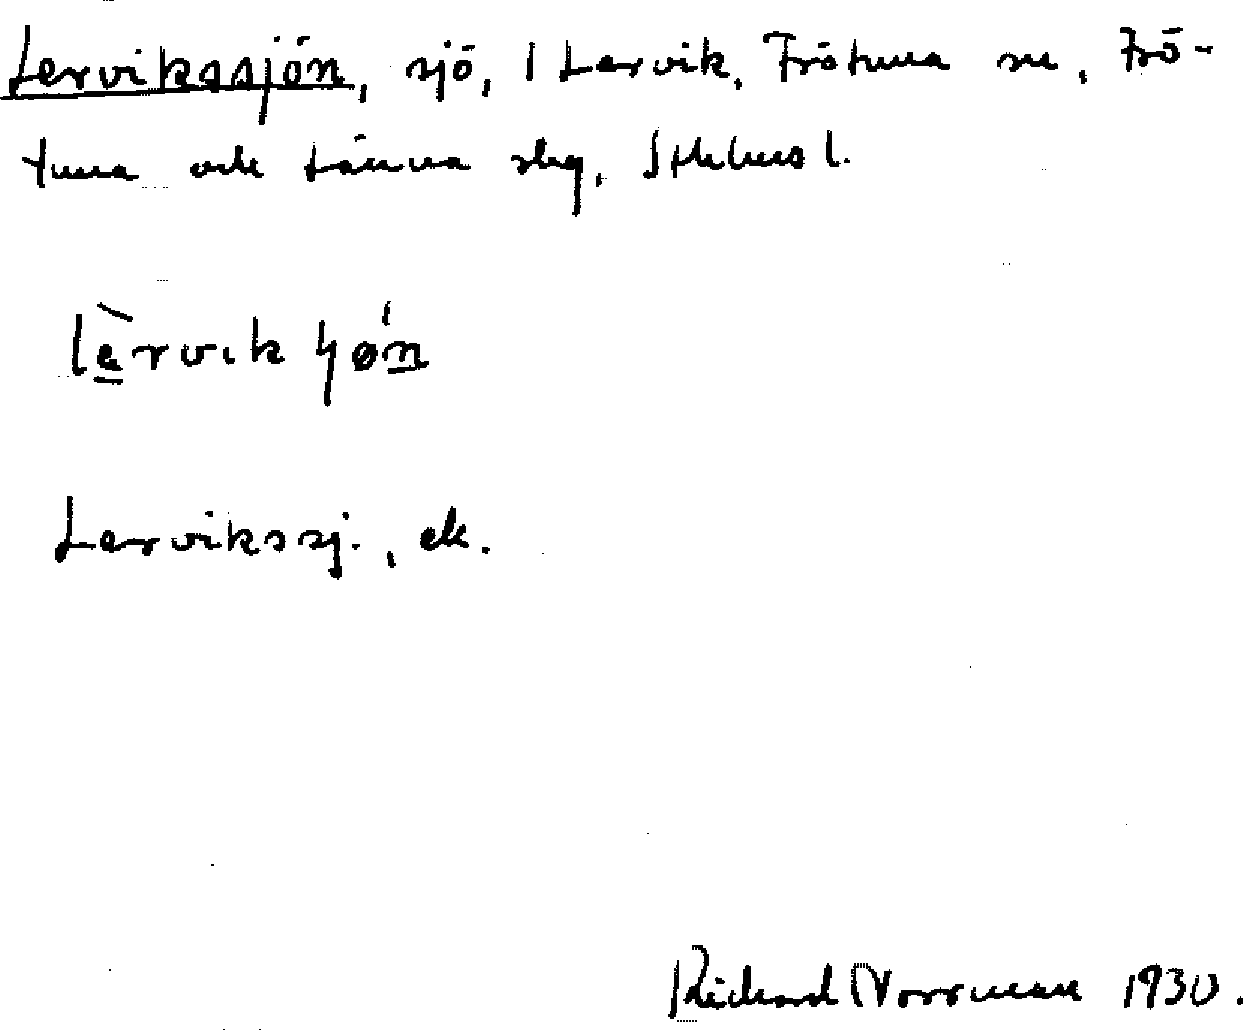 Lervikssjön, sjö, 1 Lervik, Frötuna sn, Frö-
tuna och Länna slg, Sthlms l.
lèrvikɧø̀n
Lervikssj., ek.
Richard Norrman 1930.